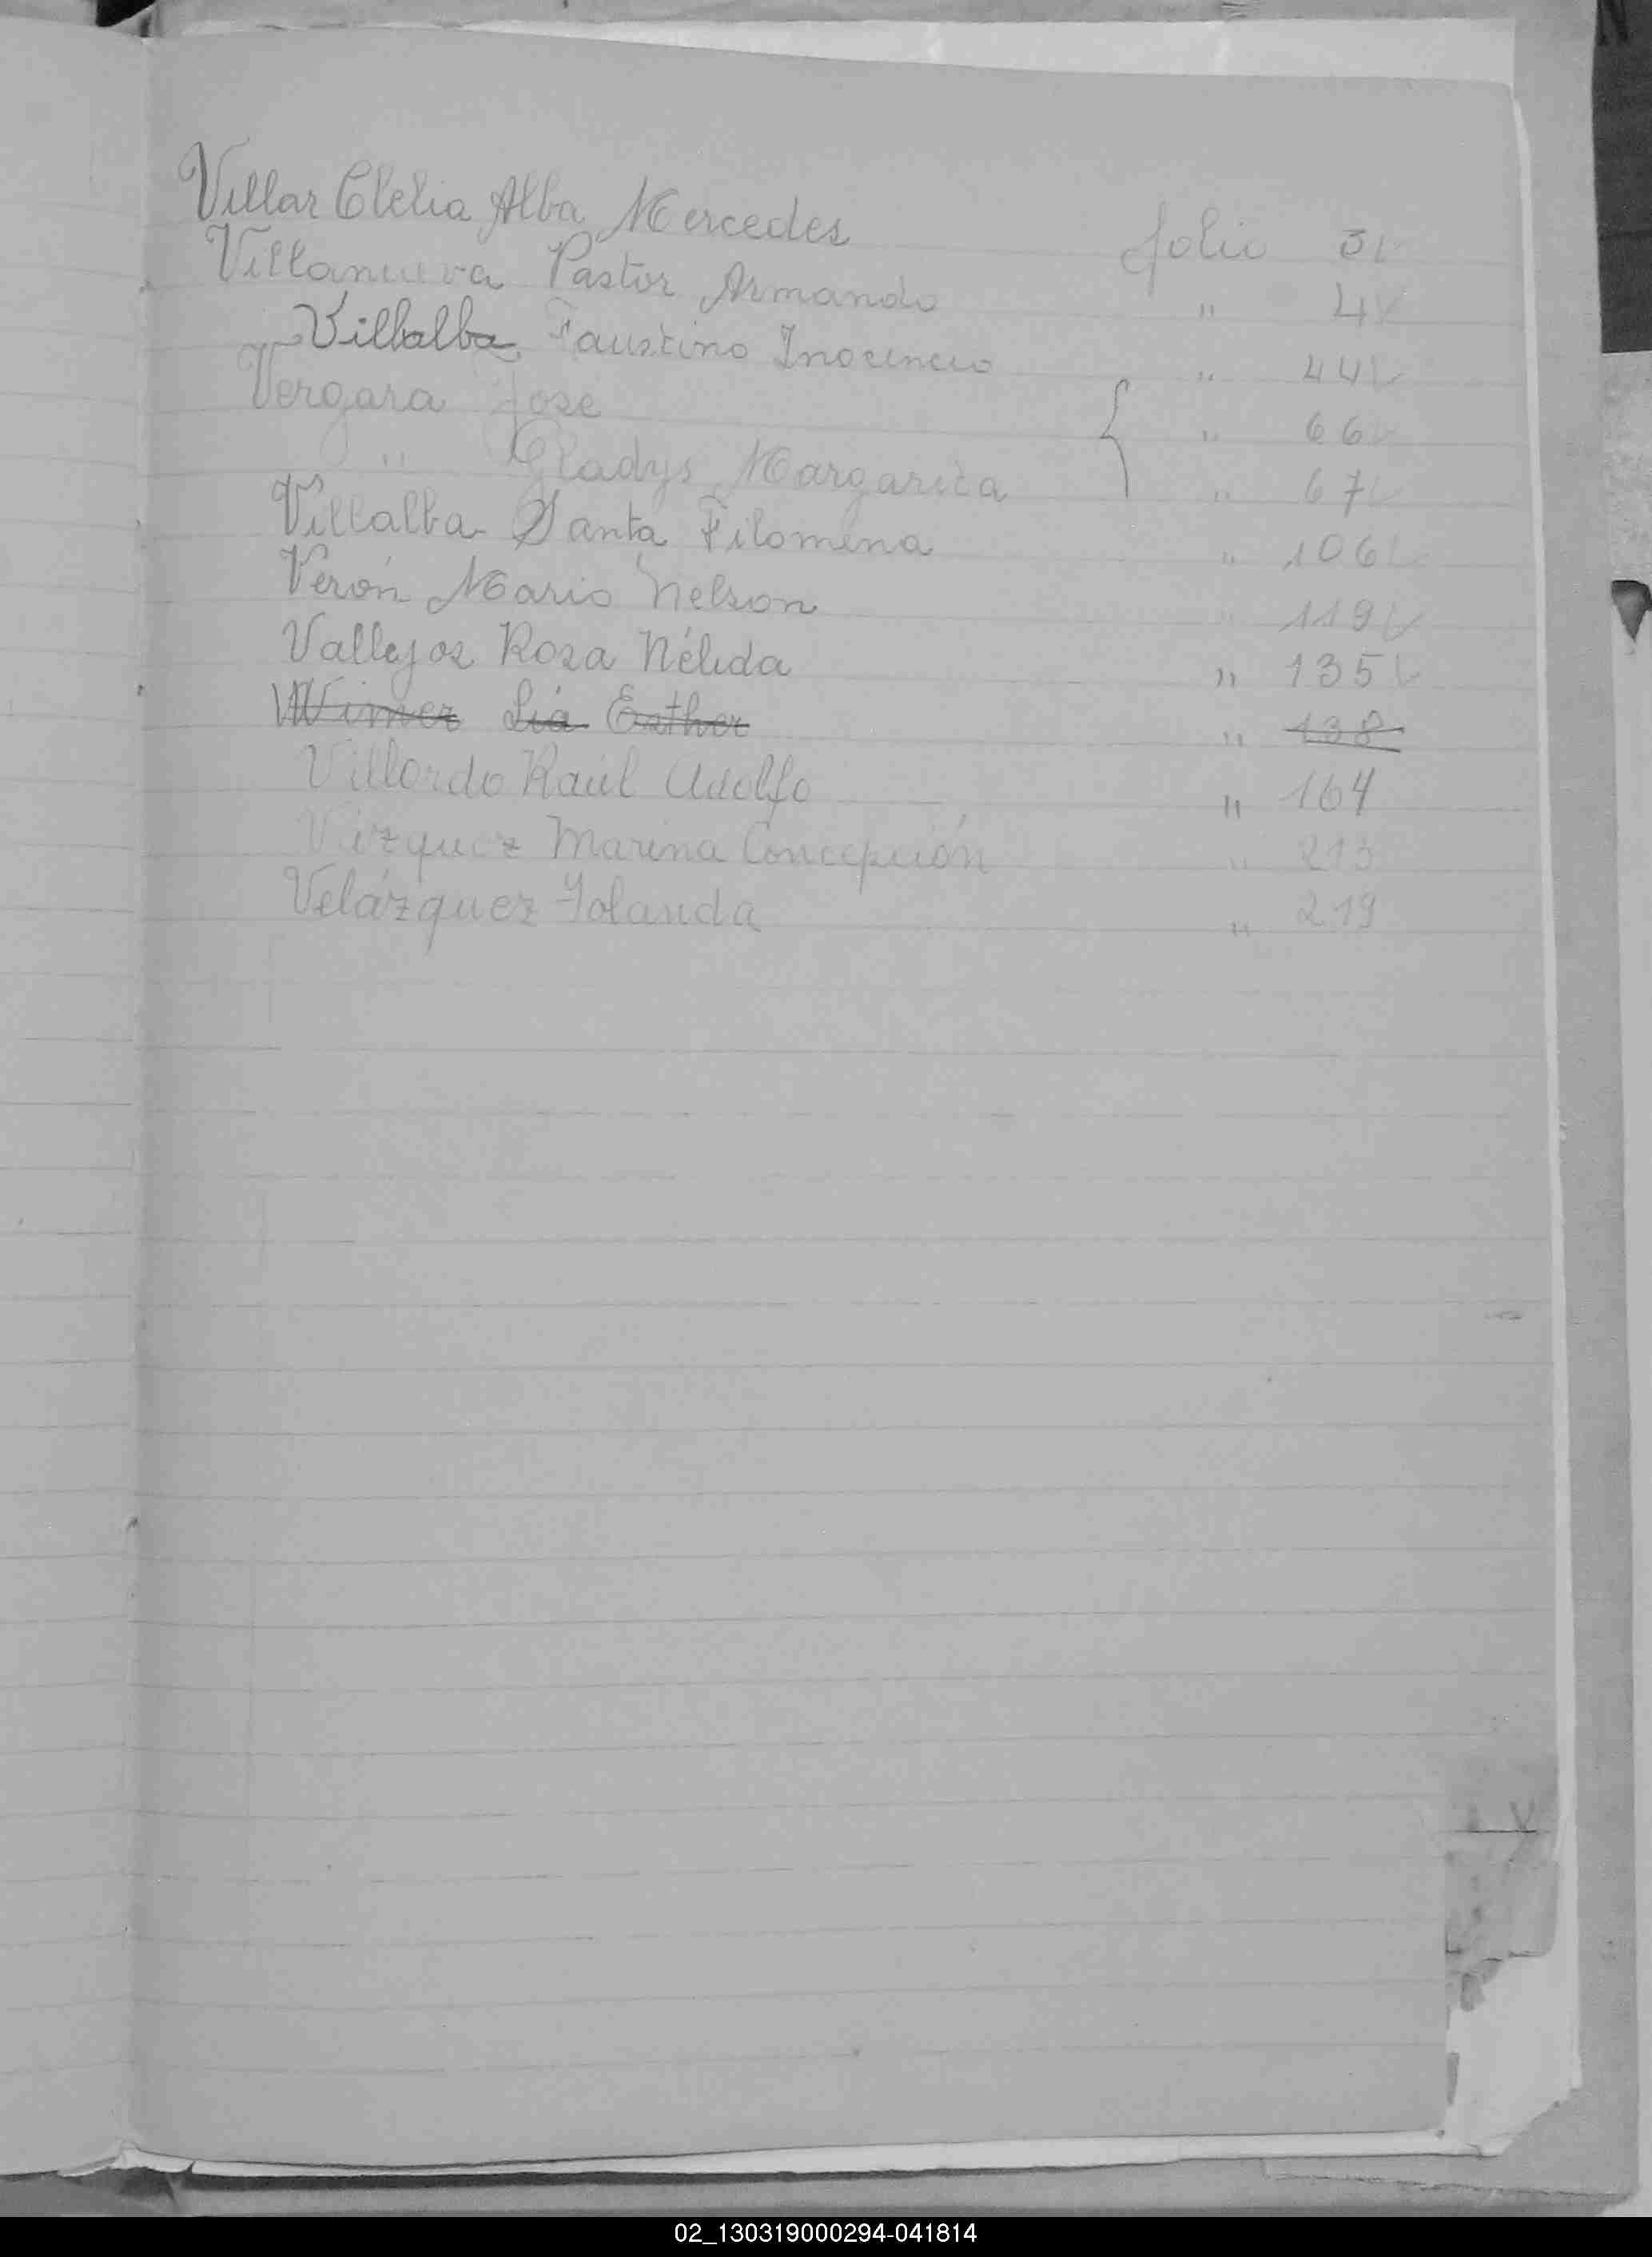 Villar Clelia Alba Mercedes folio 3
Villanueva Pastor Armando " 4
Villalba Faustino Inocencio " 44
Vergara José " 66
" Gladys Margarita " 67
Villalba Santa Filomena " 106
Verón Mario Nelson " 119
Vallejos Rosa Nélida " 135
Wimer Lía Esther " 138
Villordo Raúl Adolfo " 164
Marina Concepción " 213
Velázquez Yolanda " 219
V
02_130319000294-041814